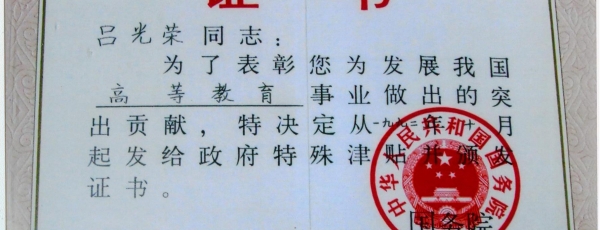 证书
吕光荣同志：
为了表彰您为发展我国
高等教育事业做出的突
出贡献，特决定从一九九二年十月
起发给政府特殊津贴并颁发
证书。
中华人民共和国国务院
国务院